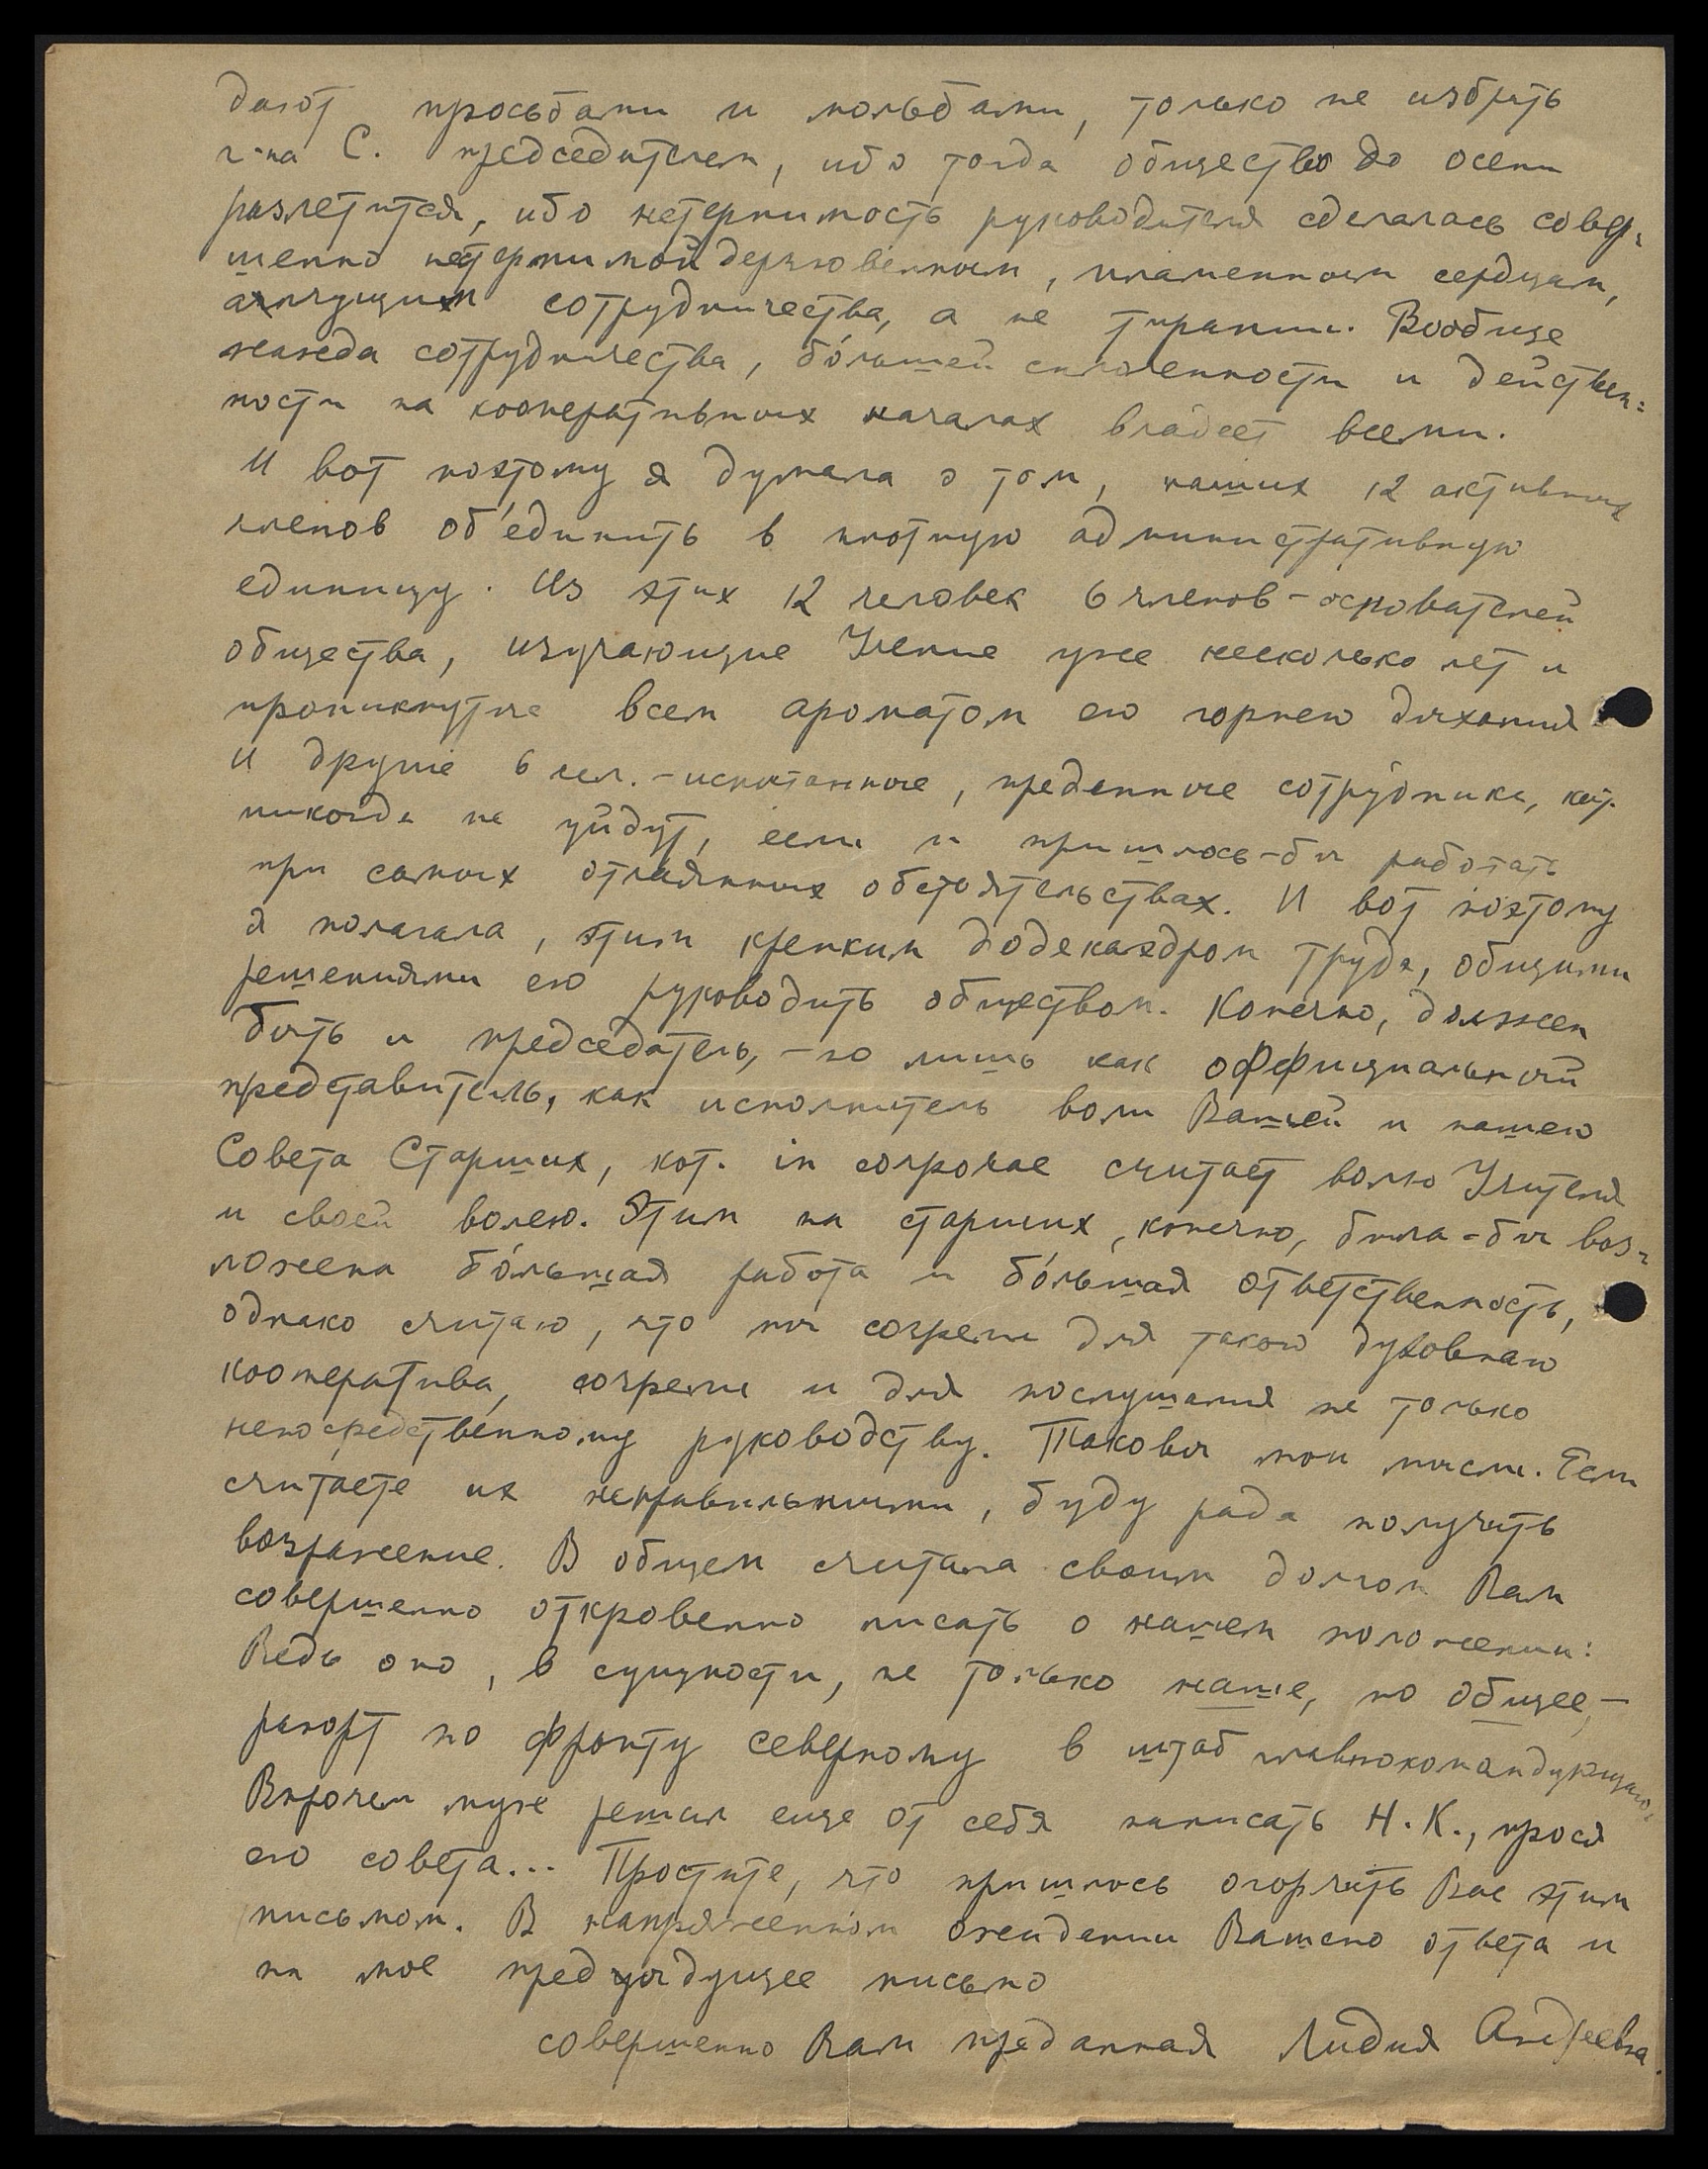 дают просьбами и мольбами, только не избрать
г-на С. председателем, ибо тогда общество до осени
разлетится, ибо нетерпимость руководителя сделалась совер-
шенно нетерпимой дерзновенным, пламенным сердцам,
алчущим сотрудничества, а не тирании. Вообще
жажда сотрудничества, бо́льшей сплоченности и действен-
ности на кооперативных началах владеет всеми.
И вот поэтому я думала о том, наших 12 активных
членов об'единить в плотную административную
единицу. Из этих 12 человек 6 членов-основателей
общества, изучающие Учение уже несколько лет и
проникнутые всем ароматом его горнего дыхания
и другие 6 чел. - испытанные, преданные сотрудники, кот.
никогда не уйдут, если и пришлось-бы работать
при самых отчаянных обстоятельствах. И вот поэтому
я полагала, этим крепким додекаэдром труда, общими
решениями его руководить обществом. Конечно, должен
быть и председатель, - но лишь как оффициальный
представитель, как исполнитель воли Вашей и нашего
Совета Старших, кот. in corpore считает волю Учителя
и своей волею. Этим на старших, конечно, была-бы воз-
ложена бо́льшая работа и бо́льшая ответственность,
однако считаю, что мы созрели для такого духовного
кооператива, созрели и для послушания не только
непосредственному руководству. Таковы мои мысли. Если
считаете их неправильными, буду рада получить
возражение. В общем считала своим долгом Вам
совершенно откровенно писать о нашем положении:
Ведь оно, в сущности, не только наше, но общее, -
рапорт по фронту северному в штаб главнокомандующего.
Впрочем муж решил еще от себя написать Н.К., прося
его совета... Простите, что пришлось огорчить Вас этим
письмом. В напряженном ожидании Вашего ответа и
на мое предыдущее письмо
совершенно Вам преданная Лидия Андреевна.